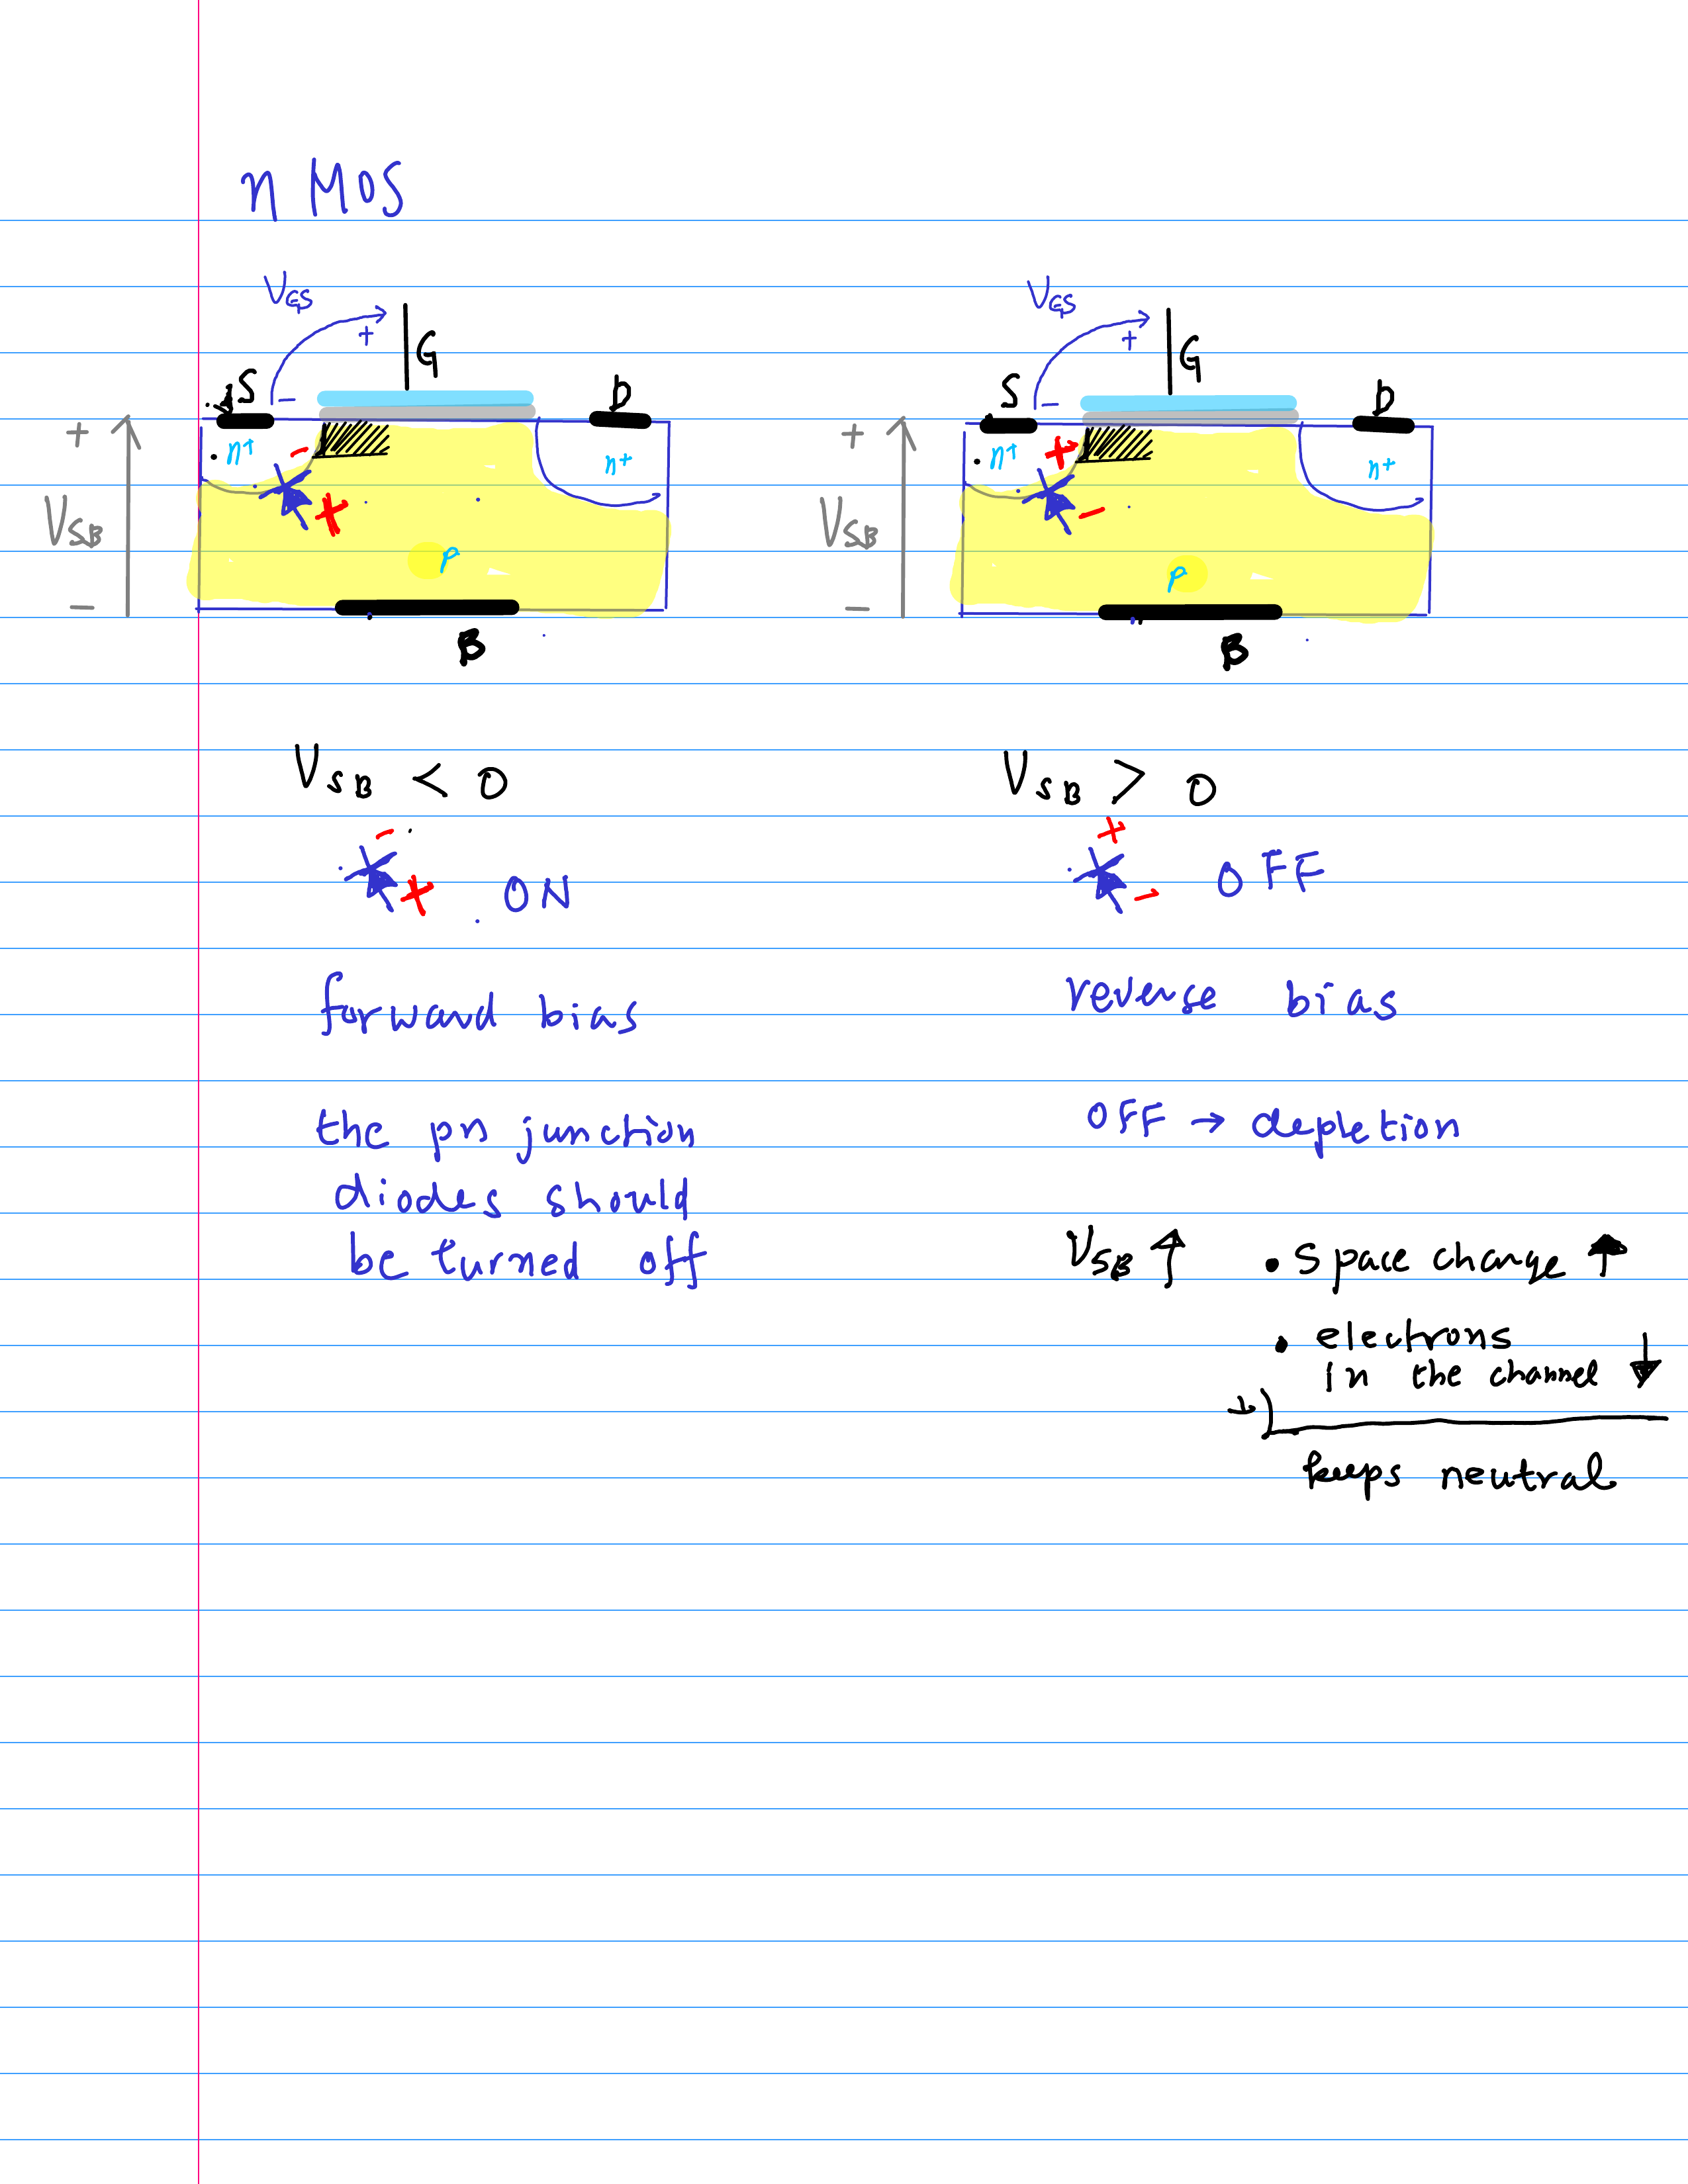 n MOS
VGS
+
G
S
-
D
+
n+
-
n+
VSB
+
p
-
B
VGS
+
G
S
-
D
+
n+
+
n+
VSB
-
p
-
B
VSB < 0
-
+ ON
forward bias
the pn junction
diodes should
be turned off
VSB > 0
+
- OFF
reverse bias
OFF → depletion
VSB ↑ • space change ↑
• electrons
in the channel ↓
keeps neutral